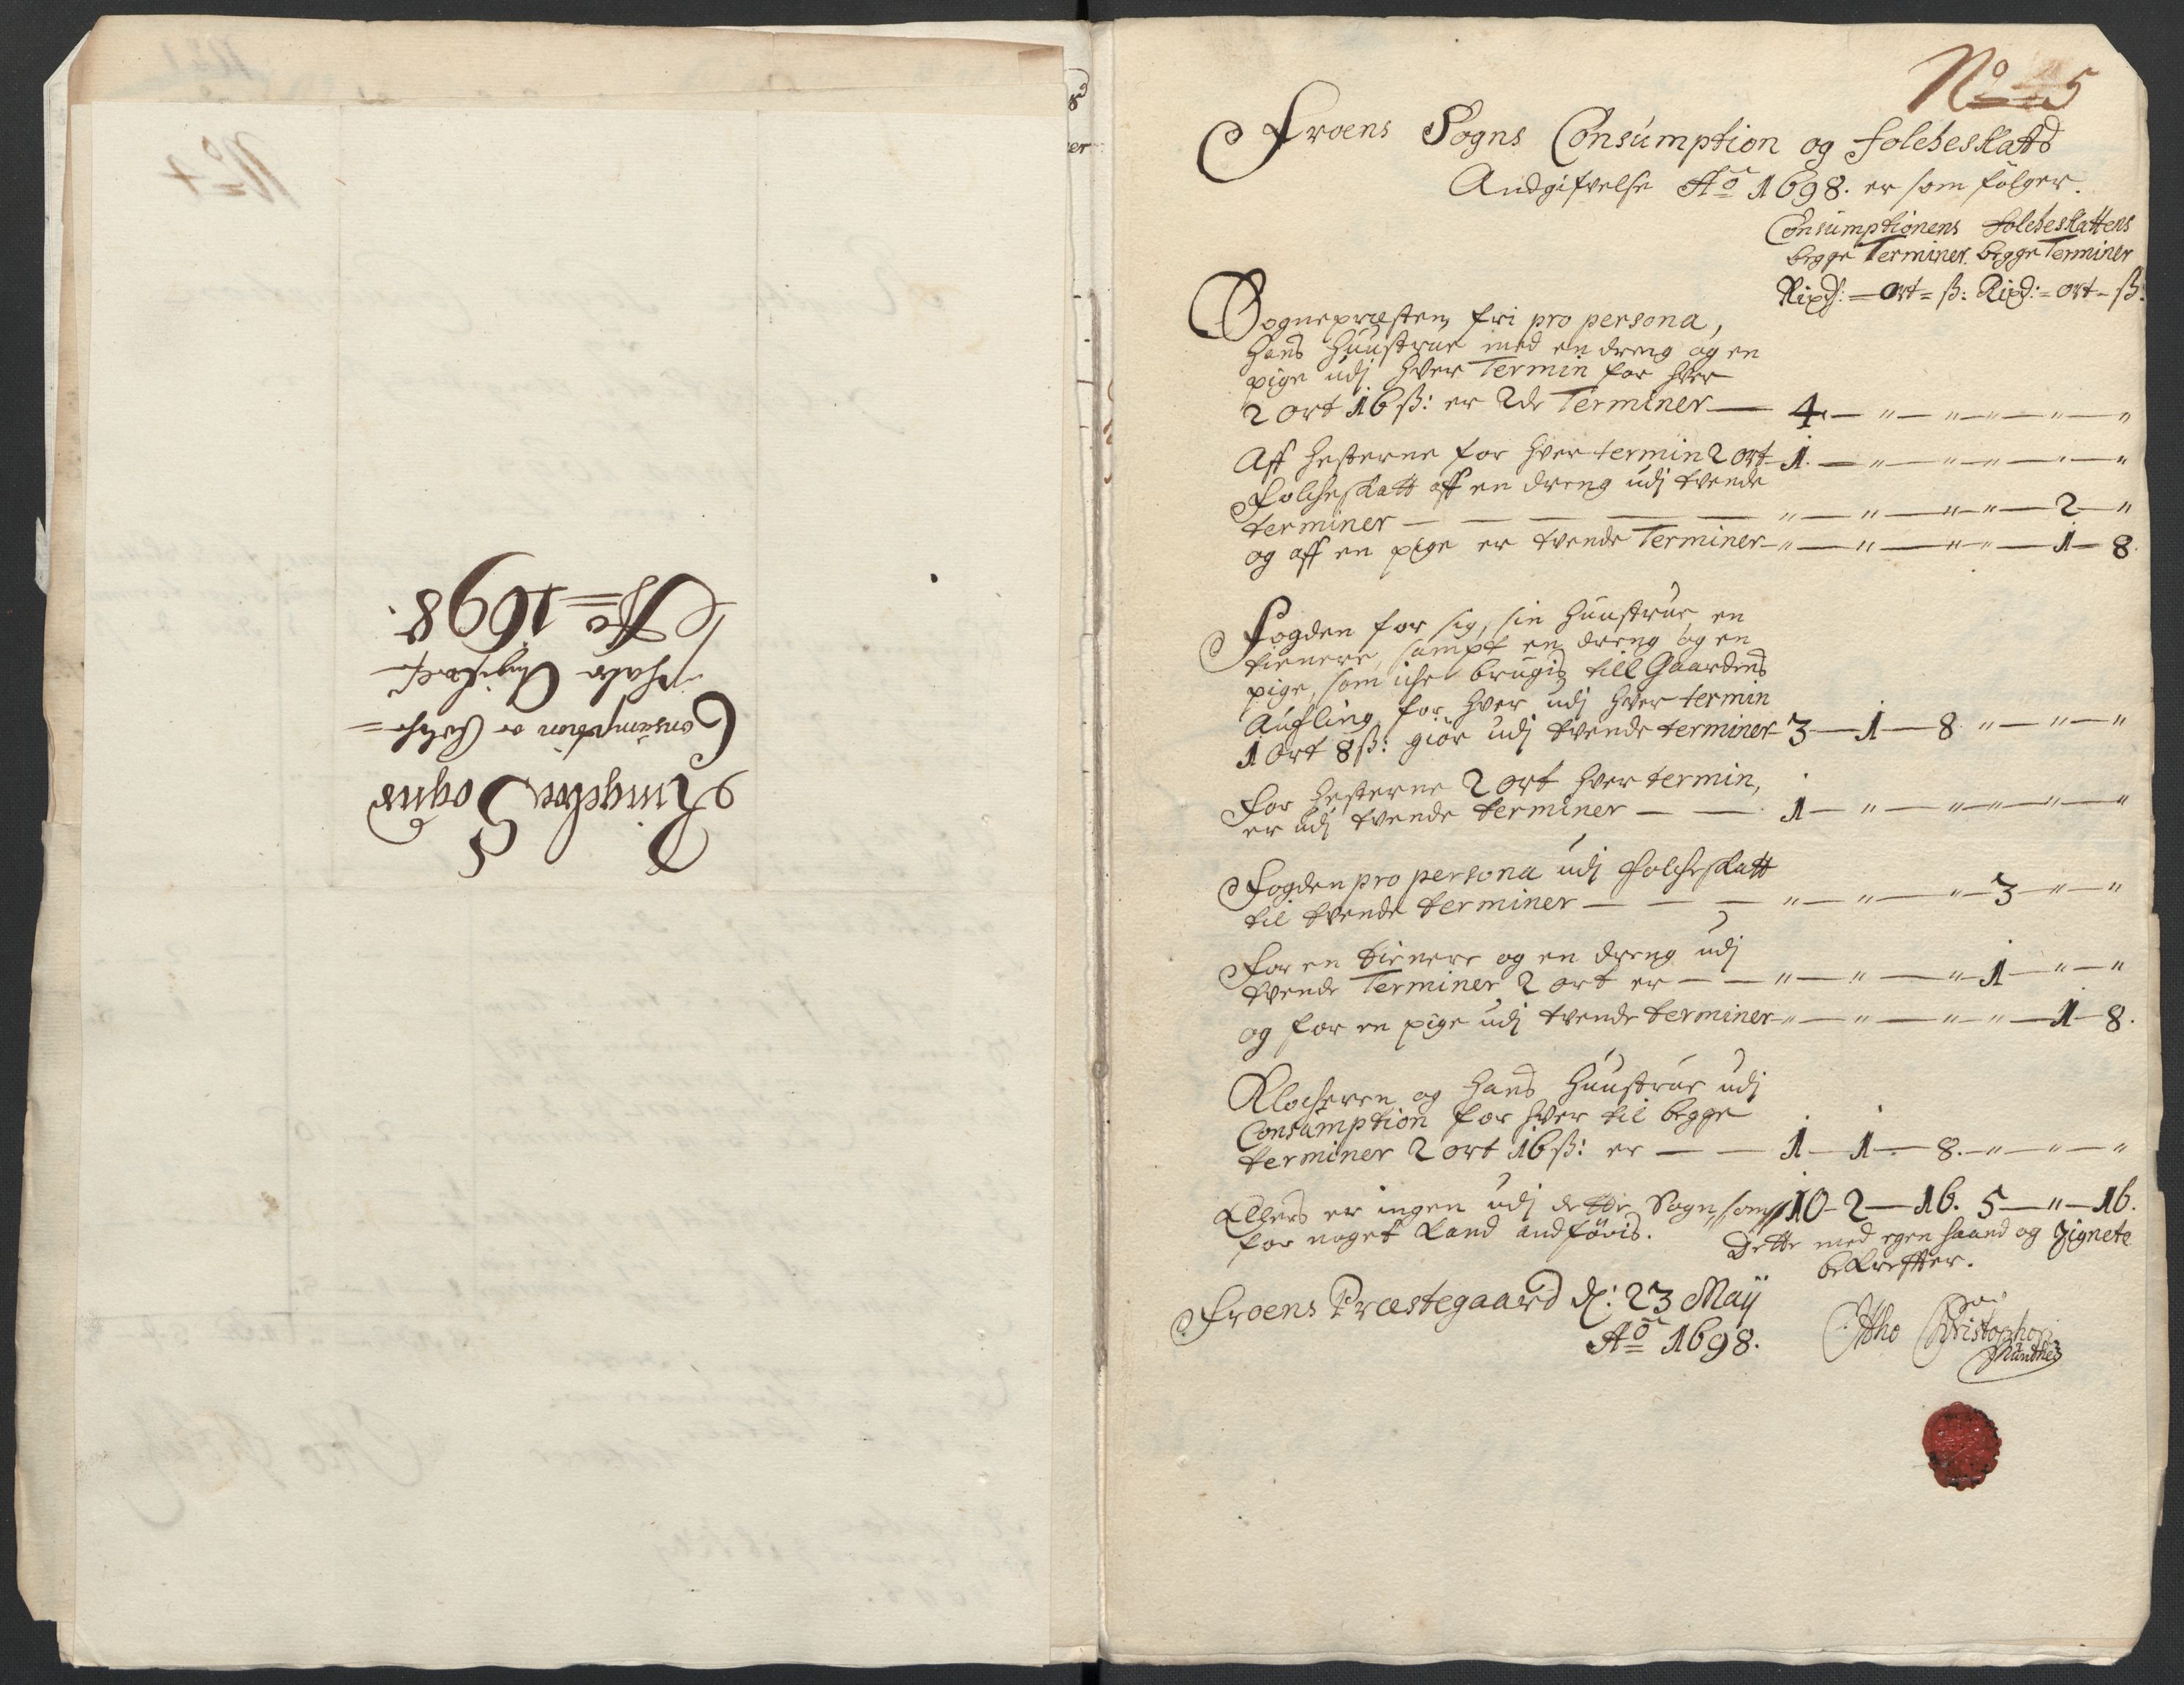 Ringeboe Sogns
Consumption og Folche=
schatz Angifvelse
Ao= 1698.
No 5
Froens Sogns Consumption og folcheskatts
Andgifvelse Ao 1698. er som fölger.
Consumptionens folcheskattens
begge Terminer. begge Terminer
Rixd: = Ort = ß: Rixd: = ort - ß:
Sognepræsten fri pro persona,
hans Huustrue med en dreng og en
pige udj hver Termin for hver
2 ort 16 ß: er 2de Terminer — 4 — " — " — " — " — "
Aff hesterne for hver termin 2 ort - 1 — " — " — " — " — "
Folcheskatt aff en dreng udj tvende
terminer — — — — — " — " — " — " — 2 — "
og aff en pige er tvende Terminer — " — " — " — " — 1 — 8.
Fogden for sig, sin Huustrue, en
tienere, sampt en dreng og en
pige, som iche brugis till Gaardens
Aufling, for hver udj hver termin
1 Ort 8 ß: giör udj tvende terminer 3 — 1 — 8. " — " — "
For hesterne 2 ort hver termin,
er udj tvende terminer — — 1 — " — " — " — " — "
Fogden pro persona udj folcheskatt
til tvende terminer — — — " — " — " — 3 — " — "
For en tienere og en dreng udj
tvende Terminer 2 ort er — — " — " — " — 1 — " — "
og for en pige udj tvende terminer — " — " — " — " — 1 — 8.
Klocheren og hans Huustrue udj
Consumption for hver til begge
terminer 2 ort 16 ß: er — — 1 — 1 — 8. — " — " — "
Ellers er ingen udj dette Sogn, som 10 - 2 — 16. 5 — " — 16.
for noget kand andföris. Dette med egen haand og Zignete
bekreffter.
Froens Præstegaard d: 23 Maij
Ao 1698.
Otho Christophers
Munthe